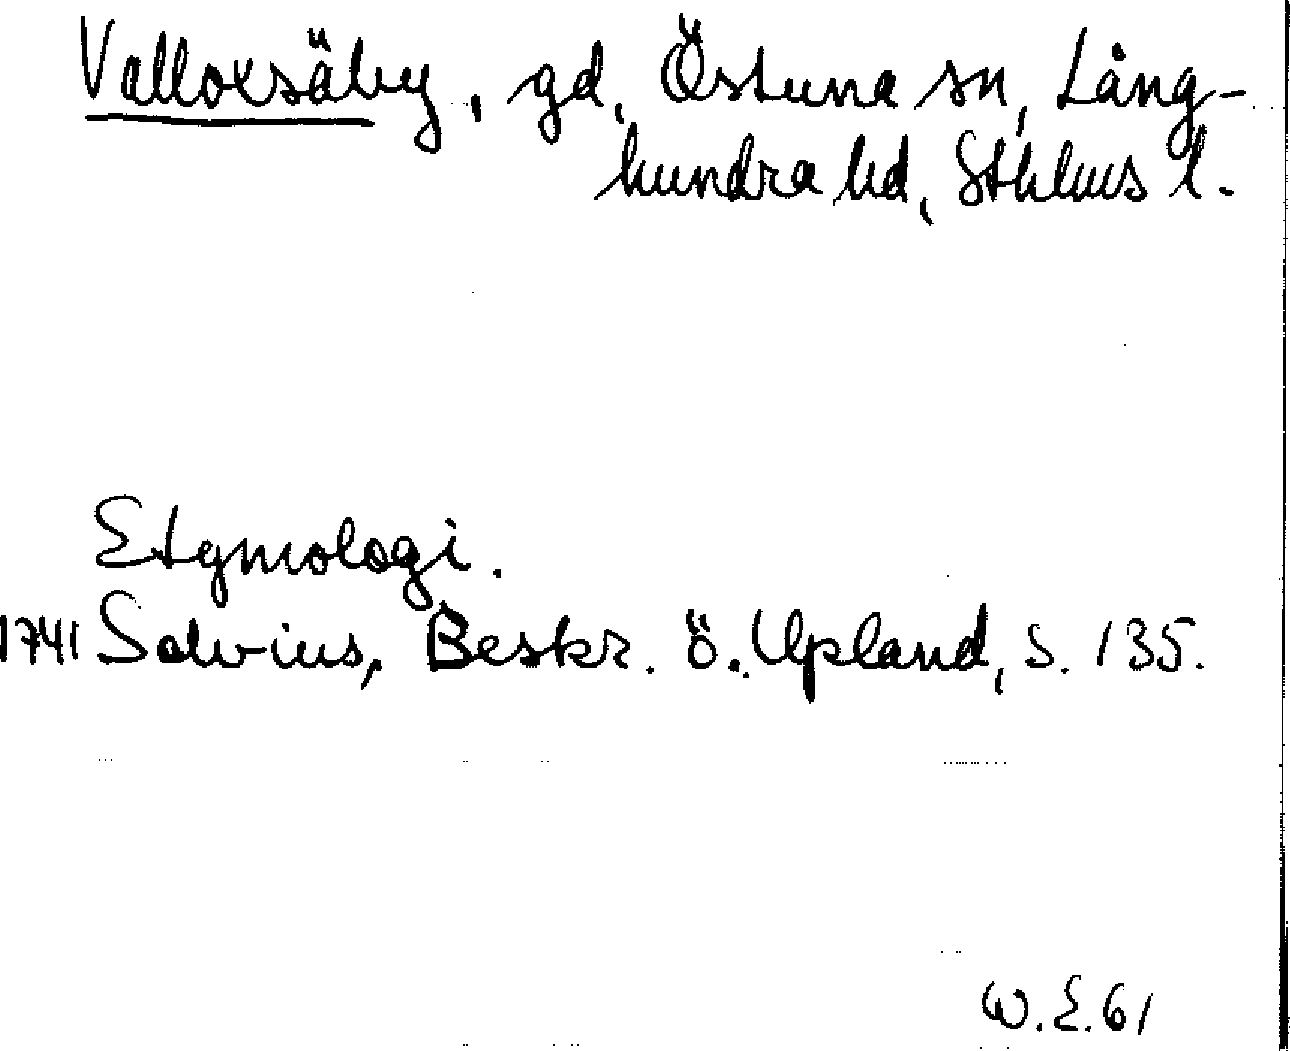 Valloxsäby, gd, Östuna sn, Lång-
hundra hd, Sthlms l.
Etymologi.
1741 Salvius, Beskr. ö. Upland, s. 135.
W.E. 61